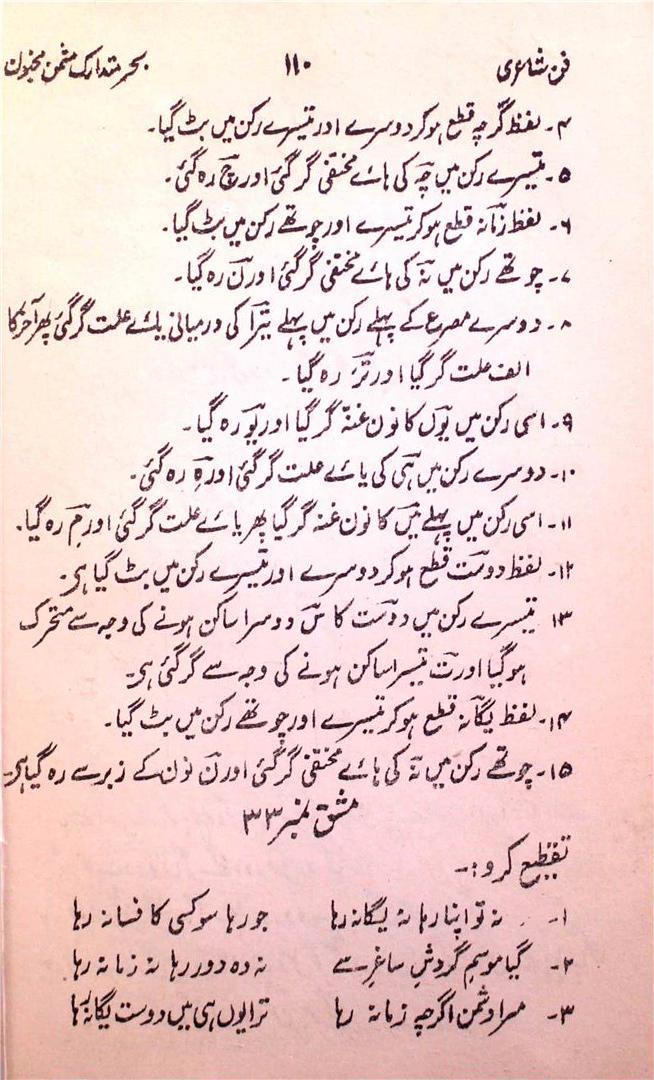 فن شاعری ۱۱۰ بحر متدارک مثمن مخبون
۴۔ لفظ گرچہ قطع ہوکر دوسرے اور تیسرے رکن میں بٹ گیا۔
۵۔ تیسرے رکن میں چہ کی ہائے مختفی گر گئی اور چ رہ گئی۔
۶۔ لفظ زمانہ قطع ہوکر تیسرے اور چوتھے رکن میں بٹ گیا۔
۷۔ چوتھے رکن میں نہ کی ہائے مختفی گر گئی اور ن رہ گیا۔
۸۔ دوسرے مصرع کے پہلے رکن میں پہلے تیرا کی درمیانی یائے علت گر گئی پھر آخر کا
الف علت گر گیا اور تر رہ گیا۔
۹۔ اسی رکن میں یوں کا نون غنہ گر گیا اور یو رہ گیا۔
۱۰۔ دوسرے رکن میں ہی کی یائے علت گر گئی اور ہ رہ گئی۔
۱۱۔ اسی رکن میں پہلے میں کا نون غنہ گر گیا پھر یائے علت گر گئی اور م رہ گیا۔
۱۲۔ لفظ دوست قطع ہوکر دوسرے اور تیسرے رکن میں بٹ گیا ہی۔
۱۳ تیسرے رکن میں دوست کا س دوسرا ساکن ہونے کی وجہ سے متحرک
ہو گیا اور ت تیسرا ساکن ہونے کی وجہ سے گر گئی ہی۔
۱۴۔ لفظ یگانہ قطع ہوکر تیسرے اور چوتھے رکن میں بٹ گیا۔
۱۵۔ چوتھے رکن میں نہ کی ہائے مختفی گر گئی اور ن نون کے زبر سے رہ گیا ہی۔
مشق نمبر ۳۳
تقطیع کرو:۔
۱۔ نہ تو اپنا رہا نہ یگانہ رہا جو رہا سو کسی کا فسانہ رہا
۲۔ گیا موسم گردشِ ساغر سے نہ وہ دور رہا نہ زمانہ رہا
۳۔ مرا دشمن اگرچہ زمانہ رہا ترا یوں ہی میں دوست یگانہ رہا